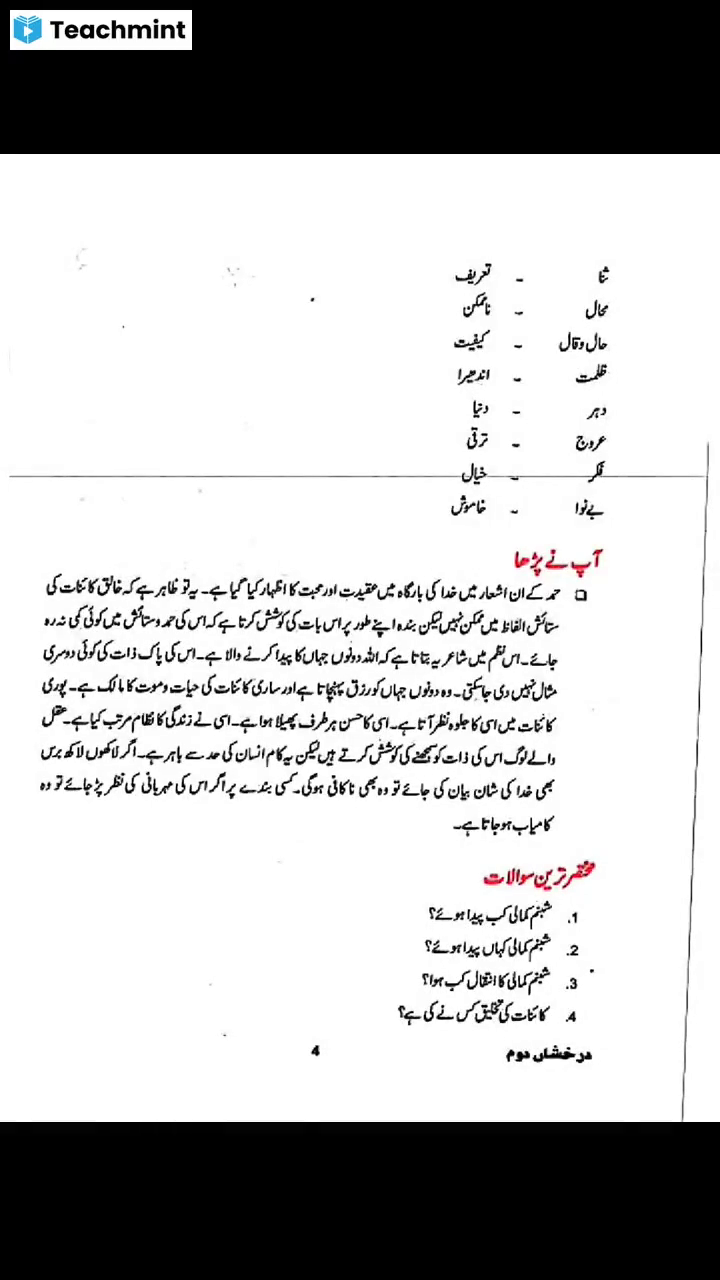 Teachmint
ثنا - تعریف
محال - ناممکن
حال و قال - کیفیت
ظلمت - اندھیرا
دہر - دنیا
عروج - ترقی
فکر - خیال
بے نوا - خاموش
آپ نے پڑھا
❑ حمد کے ان اشعار میں خدا کی بارگاہ میں عقیدت اور محبت کا اظہار کیا گیا ہے۔ یہ تو ظاہر ہے کہ خالق کائنات کی
ستائش الفاظ میں ممکن نہیں لیکن بندہ اپنے طور پر اس بات کی کوشش کرتا ہے کہ اس کی حمد و ستائش میں کوئی کمی نہ رہ
جائے۔ اس نظم میں شاعر یہ بتاتا ہے کہ اللہ دونوں جہاں کا پیدا کرنے والا ہے۔ اس کی پاک ذات کی کوئی دوسری
مثال نہیں دی جاسکتی۔ وہ دونوں جہاں کو رزق پہنچاتا ہے اور ساری کائنات کی حیات و موت کا مالک ہے۔ پوری
کائنات میں اسی کا جلوہ نظر آتا ہے۔ اسی کا حسن ہر طرف پھیلا ہوا ہے۔ اسی نے زندگی کا نظام مرتب کیا ہے۔ عقل
والے لوگ اس کی ذات کو سمجھنے کی کوشش کرتے ہیں لیکن یہ کام انسان کی حد سے باہر ہے۔ اگر لاکھوں لاکھ برس
بھی خدا کی شان بیان کی جائے تو وہ بھی ناکافی ہوگی۔ کسی بندے پر اگر اس کی مہربانی کی نظر پڑ جائے تو وہ
کامیاب ہو جاتا ہے۔
مختصر ترین سوالات
1. شبنم کمالی کب پیدا ہوئے؟
2. شبنم کمالی کہاں پیدا ہوئے؟
3. شبنم کمالی کا انتقال کب ہوا؟
4. کائنات کی تخلیق کس نے کی ہے؟
درخشاں دوم 4